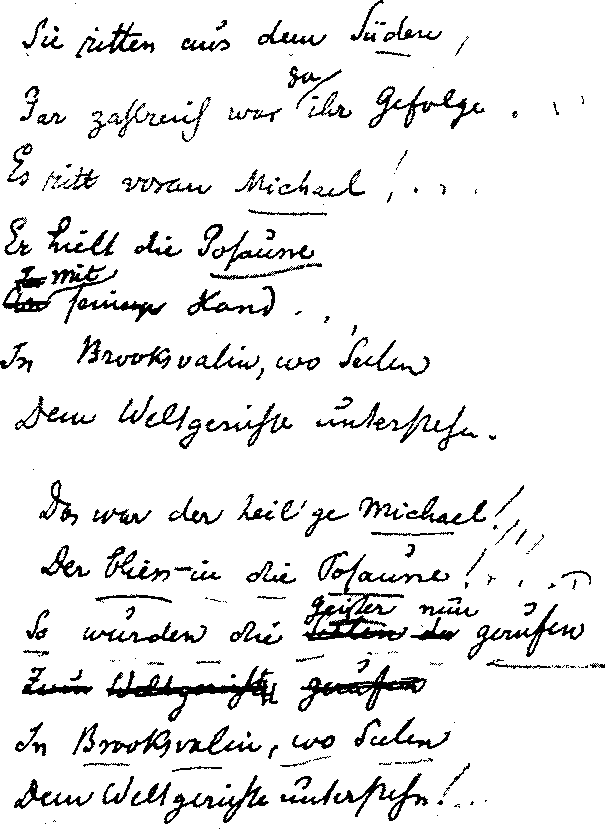 Sie ritten aus dem Süden,
Gar zahlreich war da ihr Gefolge . . .
Es ritt voran Michael! . . .
Er hielt die Posaune
mit
seiner Hand . . ,
In Brooksvalin, wo Seelen
Dem Weltgerichte unterstehn.
Das war der heil'ge Michael!
Der blies in die Posaune! . . . .
Geister nun
So wurden die Seelen da gerufen
Zum Weltgericht gerufen
In Brooksvalin, wo Seelen
Dem Weltgerichte unterstehn! . .